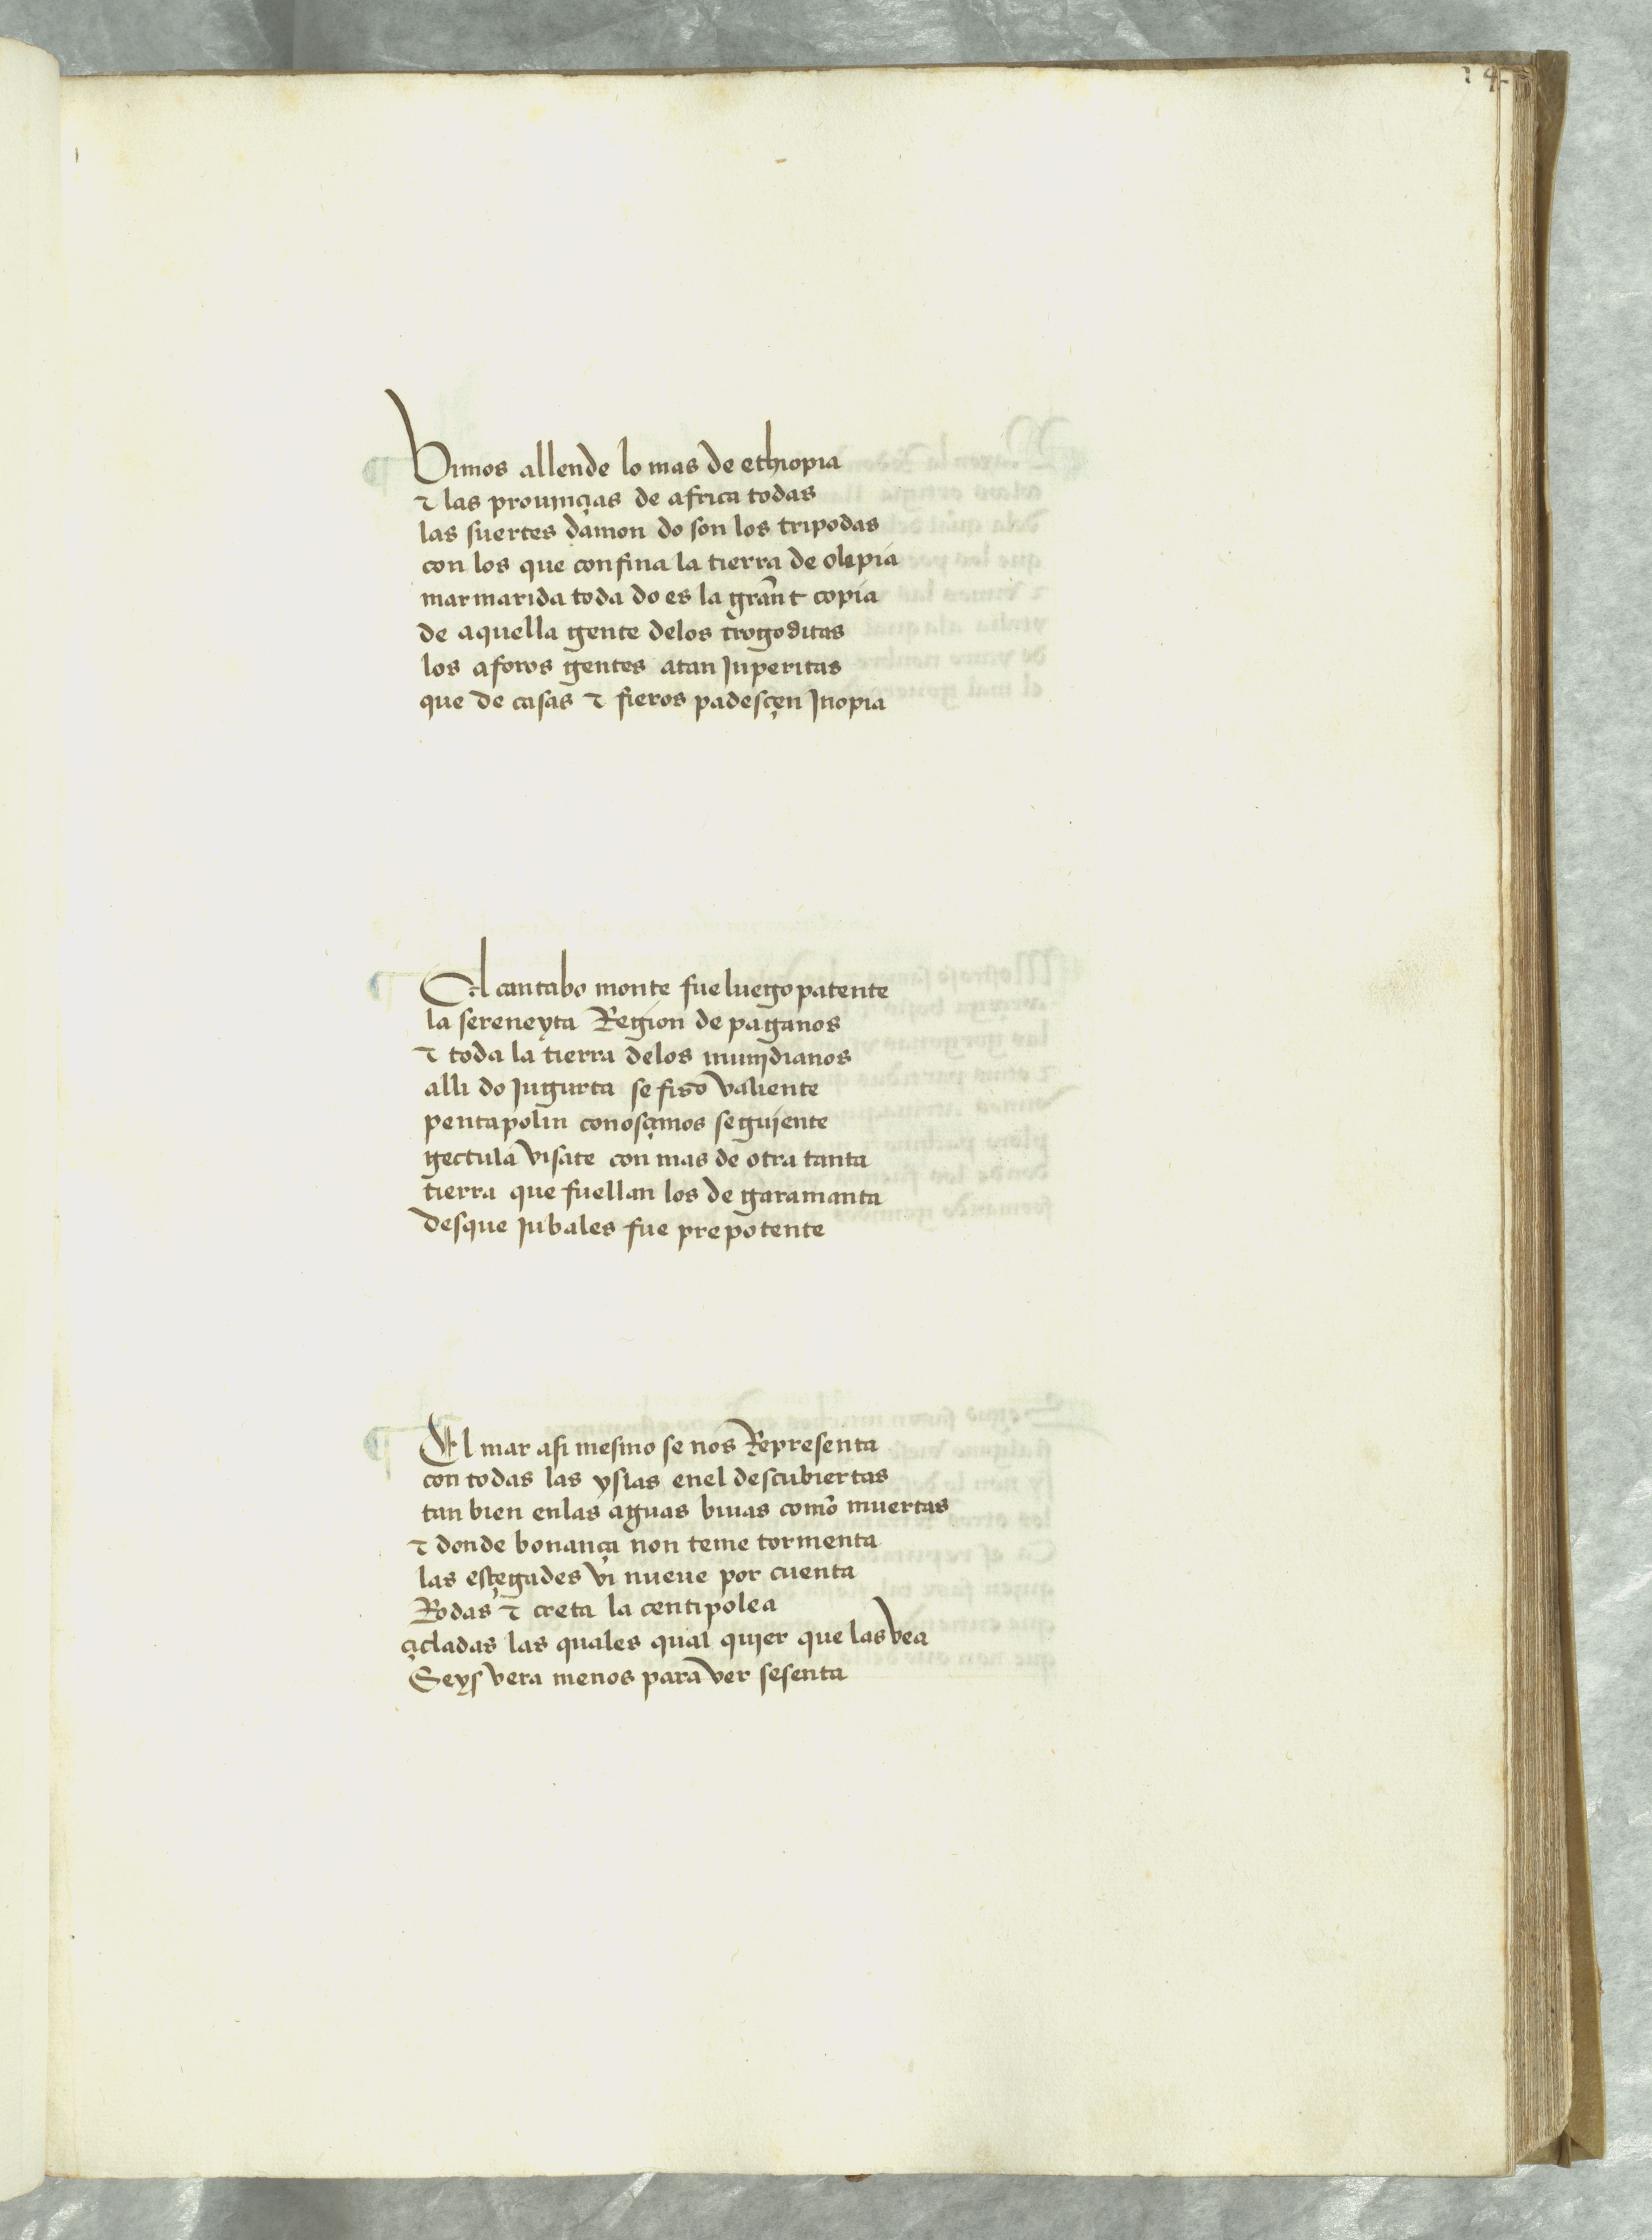 14
Vimos allende lo mas de ethiopia
⁊ las prouinçias de africa todas
las suertes damon do son los tripodas
con los que confina la tierra de olepia
marmarida toda do es la grañt copia
de aquella gente delos trogoditas
los aforos gentes atan Inperitas
que de casas ⁊ fieros padesçen Inopia
El cantabo monte fue luego patente
la sereneyta Region de paganos
⁊ toda la tierra delos mumidianos
alli do Jugurta se fiso valiente
pentapolin conosçimos seguiente
gectula visate con mas de otra tanta
tierra que fuellan los de garamanta
desque Jubales fue prepotente
El mar asi mesmo se nos Representa
con todas las yslas enel descubiertas
tan bien enlas aguas biuas como muertas
⁊ donde bonança non teme tormenta
las esteçgades vi nueue por cuenta
Rodas ⁊ creta la centipolea
çicladas las quales qual quier que las vea
Seys vera menos para ver sesenta